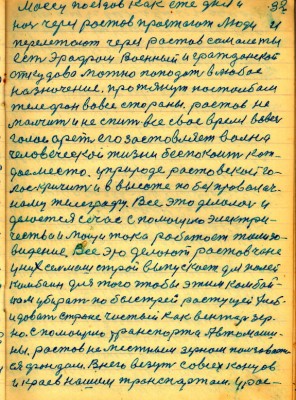 массу поездов как сте дня и 92.
ноч через ростов проезжают люди и
перелетают через ростов самолеты
есть Эрадром Военный и гражданской
откудово можно поподат в любое
назначение, протянут постолбам
телефон вовсе стораны, ростов не
молчит и не спит все свое время вовсё
голос орет, его заставляет волна
человеческой жизни беспокоит кож-
даеместо. уприроде ростовской го-
лос кричит и в высоте по без проволоч-
ному телеграфу. Все это делалос и
делается сечас с помощию электри-
чества и мощи тока работает телизо-
видение. Все Это делают ростовчане
уних сельмашстрой выпускает для полей
комбаин для того чтобы этим комбай-
ном убирать по быстрей растущей хлеб
и довать стране чистый как вентар зер-
но. С помощию транспорта Автомаши-
ны, ростов не местным зерном ползоват-
ся фондом. Внего везут совсех концов
и краев нашим транспортом. Урос-